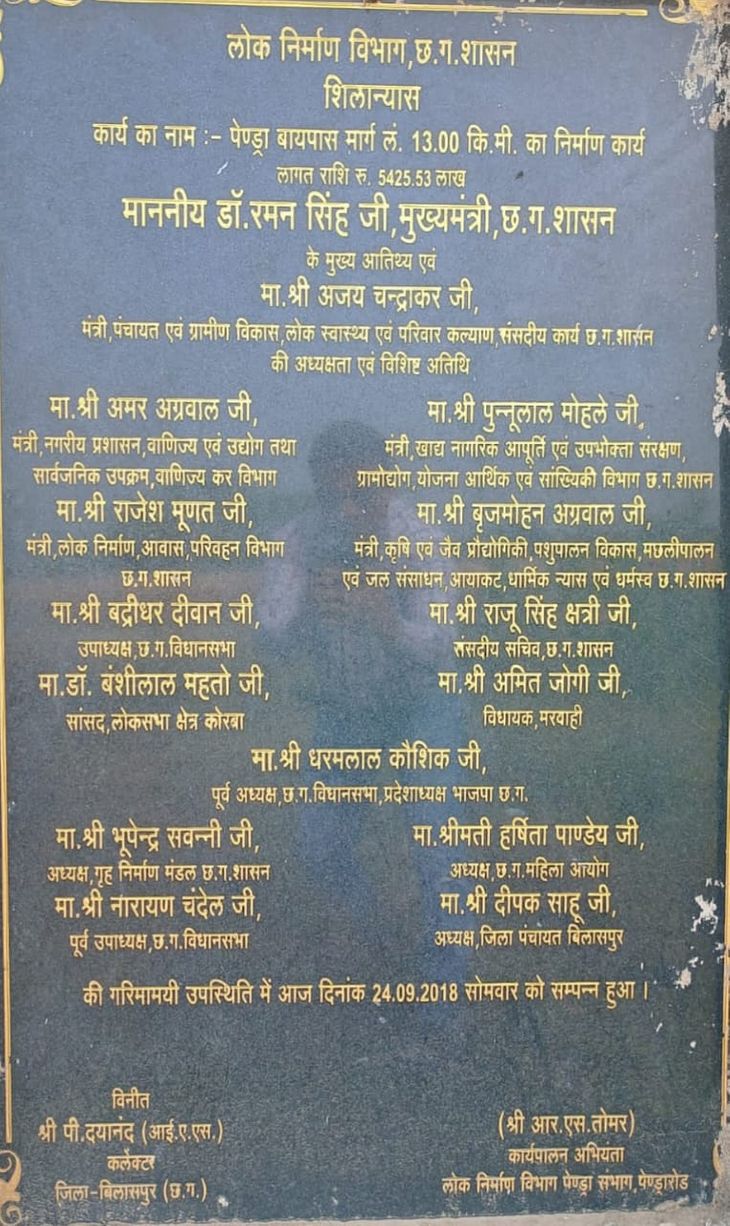 लोक निर्माण विभाग,छ.ग.शासन
शिलान्यास
कार्य का नाम :- पेण्ड्रा बायपास मार्ग लं. 13.00 कि.मी. का निर्माण कार्य
लागत राशि रु. 5425.53 लाख
माननीय डॉ.रमन सिंह जी,मुख्यमंत्री,छ.ग.शासन
के मुख्य आतिथ्य एवं
मा.श्री अजय चन्द्राकर जी,
मंत्री,पंचायत एवं ग्रामीण विकास,लोक स्वास्थ्य एवं परिवार कल्याण,संसदीय कार्य छ.ग.शासन
की अध्यक्षता एवं विशिष्ट अतिथि
मा.श्री अमर अग्रवाल जी,
मंत्री,नगरीय प्रशासन,वाणिज्य एवं उद्योग तथा
सार्वजनिक उपक्रम,वाणिज्य कर विभाग
मा.श्री पुन्नूलाल मोहले जी,
मंत्री,खाद्य नागरिक आपूर्ति एवं उपभोक्ता संरक्षण,
ग्रामोद्योग,योजना आर्थिक एवं सांख्यिकी विभाग छ.ग.शासन
मा.श्री राजेश मूणत जी,
मंत्री,लोक निर्माण,आवास,परिवहन विभाग
छ.ग.शासन
मा.श्री बृजमोहन अग्रवाल जी,
मंत्री,कृषि एवं जैव प्रौद्योगिकी,पशुपालन विकास,मछलीपालन
एवं जल संसाधन,आयाकट,धार्मिक न्यास एवं धर्मस्व छ.ग.शासन
मा.श्री बद्रीधर दीवान जी,
उपाध्यक्ष,छ.ग.विधानसभा
मा.श्री राजू सिंह क्षत्री जी,
संसदीय सचिव,छ.ग.शासन
मा.डॉ. बंशीलाल महतो जी,
सांसद,लोकसभा क्षेत्र कोरबा
मा.श्री अमित जोगी जी,
विधायक,मरवाही
मा.श्री धरमलाल कौशिक जी,
पूर्व अध्यक्ष,छ.ग.विधानसभा,प्रदेशाध्यक्ष भाजपा छ.ग.
मा.श्री भूपेन्द्र सवन्नी जी,
अध्यक्ष,गृह निर्माण मंडल छ.ग.शासन
मा.श्रीमती हर्षिता पाण्डेय जी,
अध्यक्ष,छ.ग.महिला आयोग
मा.श्री नारायण चंदेल जी,
पूर्व उपाध्यक्ष,छ.ग.विधानसभा
मा.श्री दीपक साहू जी,
अध्यक्ष,जिला पंचायत बिलासपुर
की गरिमामयी उपस्थिति में आज दिनांक 24.09.2018 सोमवार को सम्पन्न हुआ ।
विनीत
श्री पी.दयानंद (आई.ए.एस.)
कलेक्टर
जिला-बिलासपुर (छ.ग.)
(श्री आर.एस.तोमर)
कार्यपालन अभियंता
लोक निर्माण विभाग पेण्ड्रा संभाग,पेण्ड्रारोड